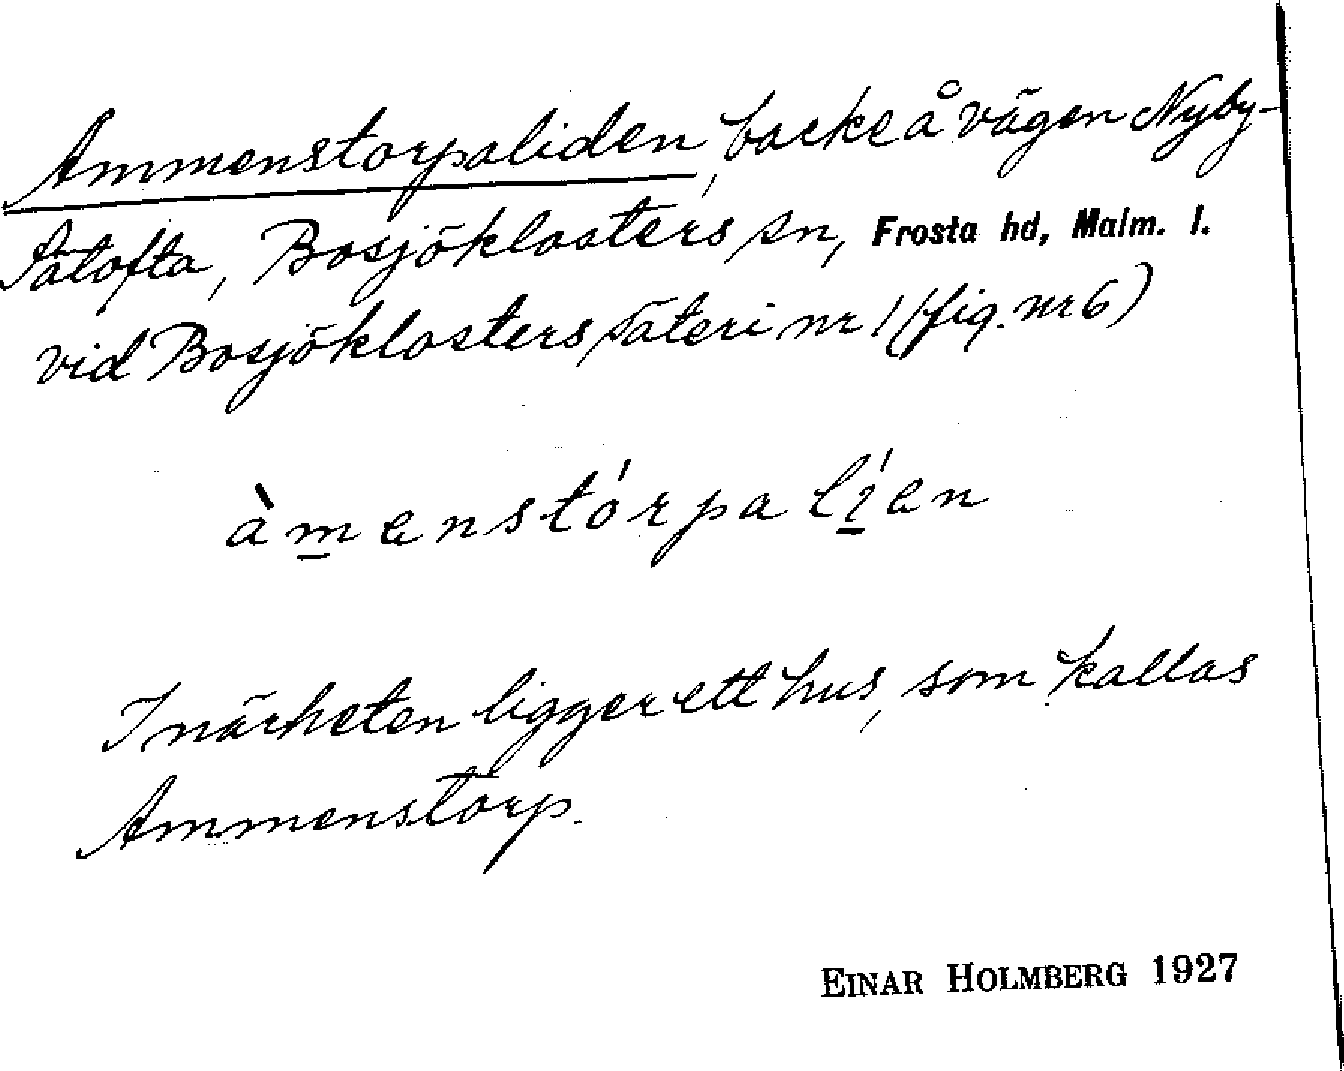 Ammenstorpaliden, backe å vägen Nyby-
Sätofta, Bosjöklosters sn, Frosta hd, Malm. l.
vid Bosjöklosters säteri nr 1 (fig. nr 6)
àmenstórpalíen
I närheten ligger ett hus, som kallas
Ammenstorp.
EINAR HOLMBERG 1927